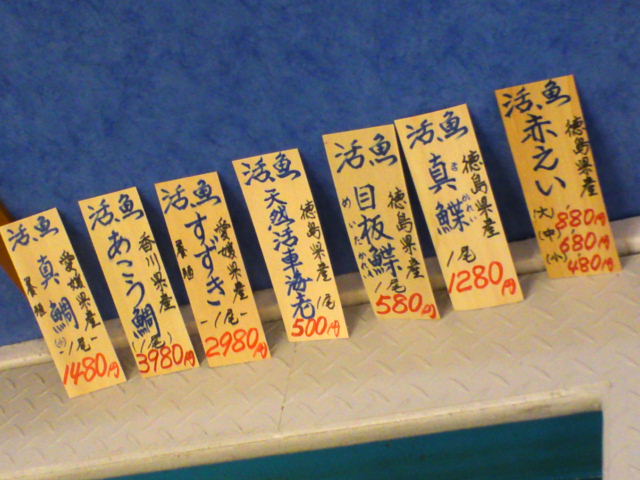 活魚
真鯛
愛媛県産
養殖
一1尾一
1480円
活魚
あこう鯛
香川県産
一1尾
3980円
活魚
すずき
愛媛県産
養殖
一1尾一
2980円
活魚
天然活車海老
徳島県産
1尾
500円
活魚
目板鰈
めいたかれい
徳島県産
1尾
580円
活魚
真鰈
徳島県産
1尾
1280円
活魚
赤えい
徳島県産
(大) 880円
(中) 680円
(小) 480円